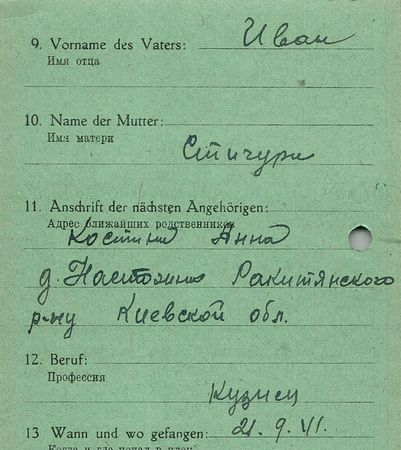 9. Vorname des Vaters: Иван
Имя отца
10. Name der Mutter:
Имя матери
Стичури
11. Anschrift der nächsten Angehörigen:
Адрес ближайших родственников
Костини Анна
д. Ракитянского
р-ну Киевской обл.
12. Beruf:
Профессия
Кузнец
13 Wann und wo gefangen: 21. 9. 41.
Когда и где попал в плен